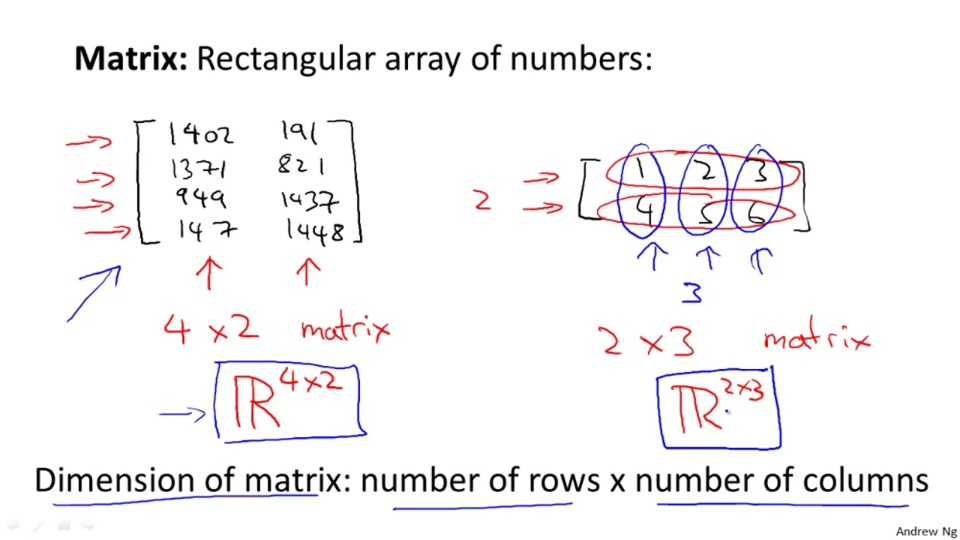 Matrix: Rectangular array of numbers:
1402 191
1371 821
949 1437
147 1448
4 x 2 matrix
ℝ^4x2
1 2 3
4 5 6
2
3
2 x 3 matrix
ℝ^2x3
Dimension of matrix: number of rows x number of columns
Andrew Ng